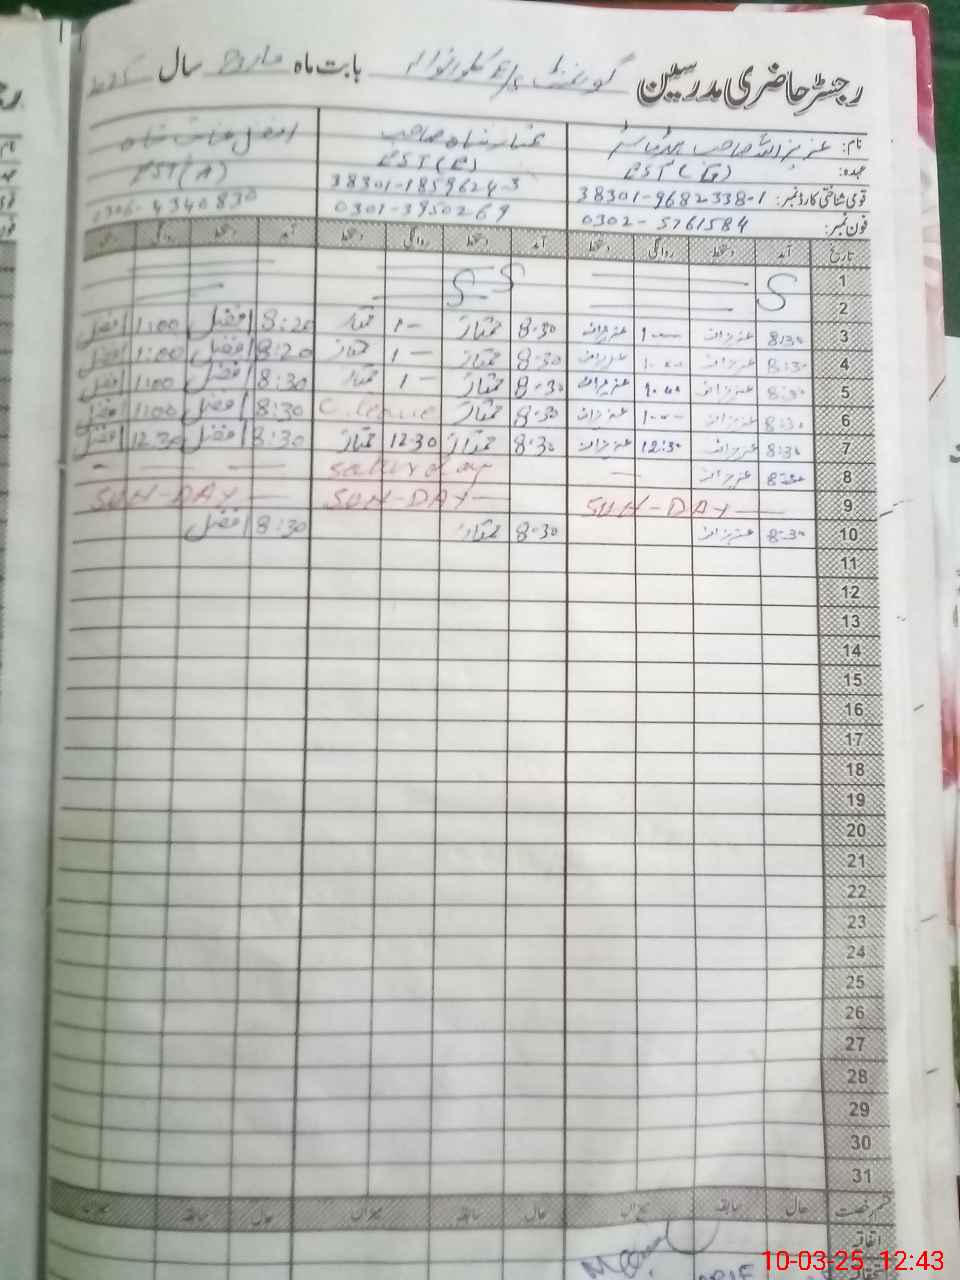 رجسٹر حاضری مدرسین گورنمنٹ بابت ماہ مارچ سال
نام: عزیز اللہ صاحب ممتاز شاہ صاحب
عہدہ: EST(A)
قومی شناختی کارڈ نمبر: 38301-9682338-1 38301-1859624-3
فون نمبر: 0302-5761584 0301-3950269 0306-4340830
تاریخ آمد دستخط روانگی دستخط آمد دستخط روانگی دستخط آمد دستخط روانگی دستخط
1 S S
2
3 8:30 عزیزاللہ 1-- عزیزاللہ 8-30 ممتاز 1- ممتاز 8:20 افضل 1:00 افضل
4 8:30 عزیزاللہ 1-00 عزیزاللہ 8-30 ممتاز 1- ممتاز 8:20 افضل 1:00 افضل
5 8:30 عزیزاللہ 1-00 عزیزاللہ 8-30 ممتاز 1- ممتاز 8:30 افضل 1:00 افضل
6 8:30 عزیزاللہ 1-- عزیزاللہ 8-30 ممتاز C.leave 8:30 افضل 1:00 افضل
7 8:30 عزیزاللہ 12:30 عزیزاللہ 8-30 ممتاز 12-30 ممتاز 8:30 افضل 12.30 افضل
8 8:30 عزیزاللہ — Saturday — — -
9 SUN-DAY — SUN-DAY — SUN-DAY —
10 8:30 عزیزاللہ 8-30 ممتاز 8:30 افضل
11
12
13
14
15
16
17
18
19
20
21
22
23
24
25
26
27
28
29
30
31
قسم رخصت حال سابقہ میزان حال سابقہ میزان حال سابقہ میزان
اتفاقیہ
10-03-25 12:43